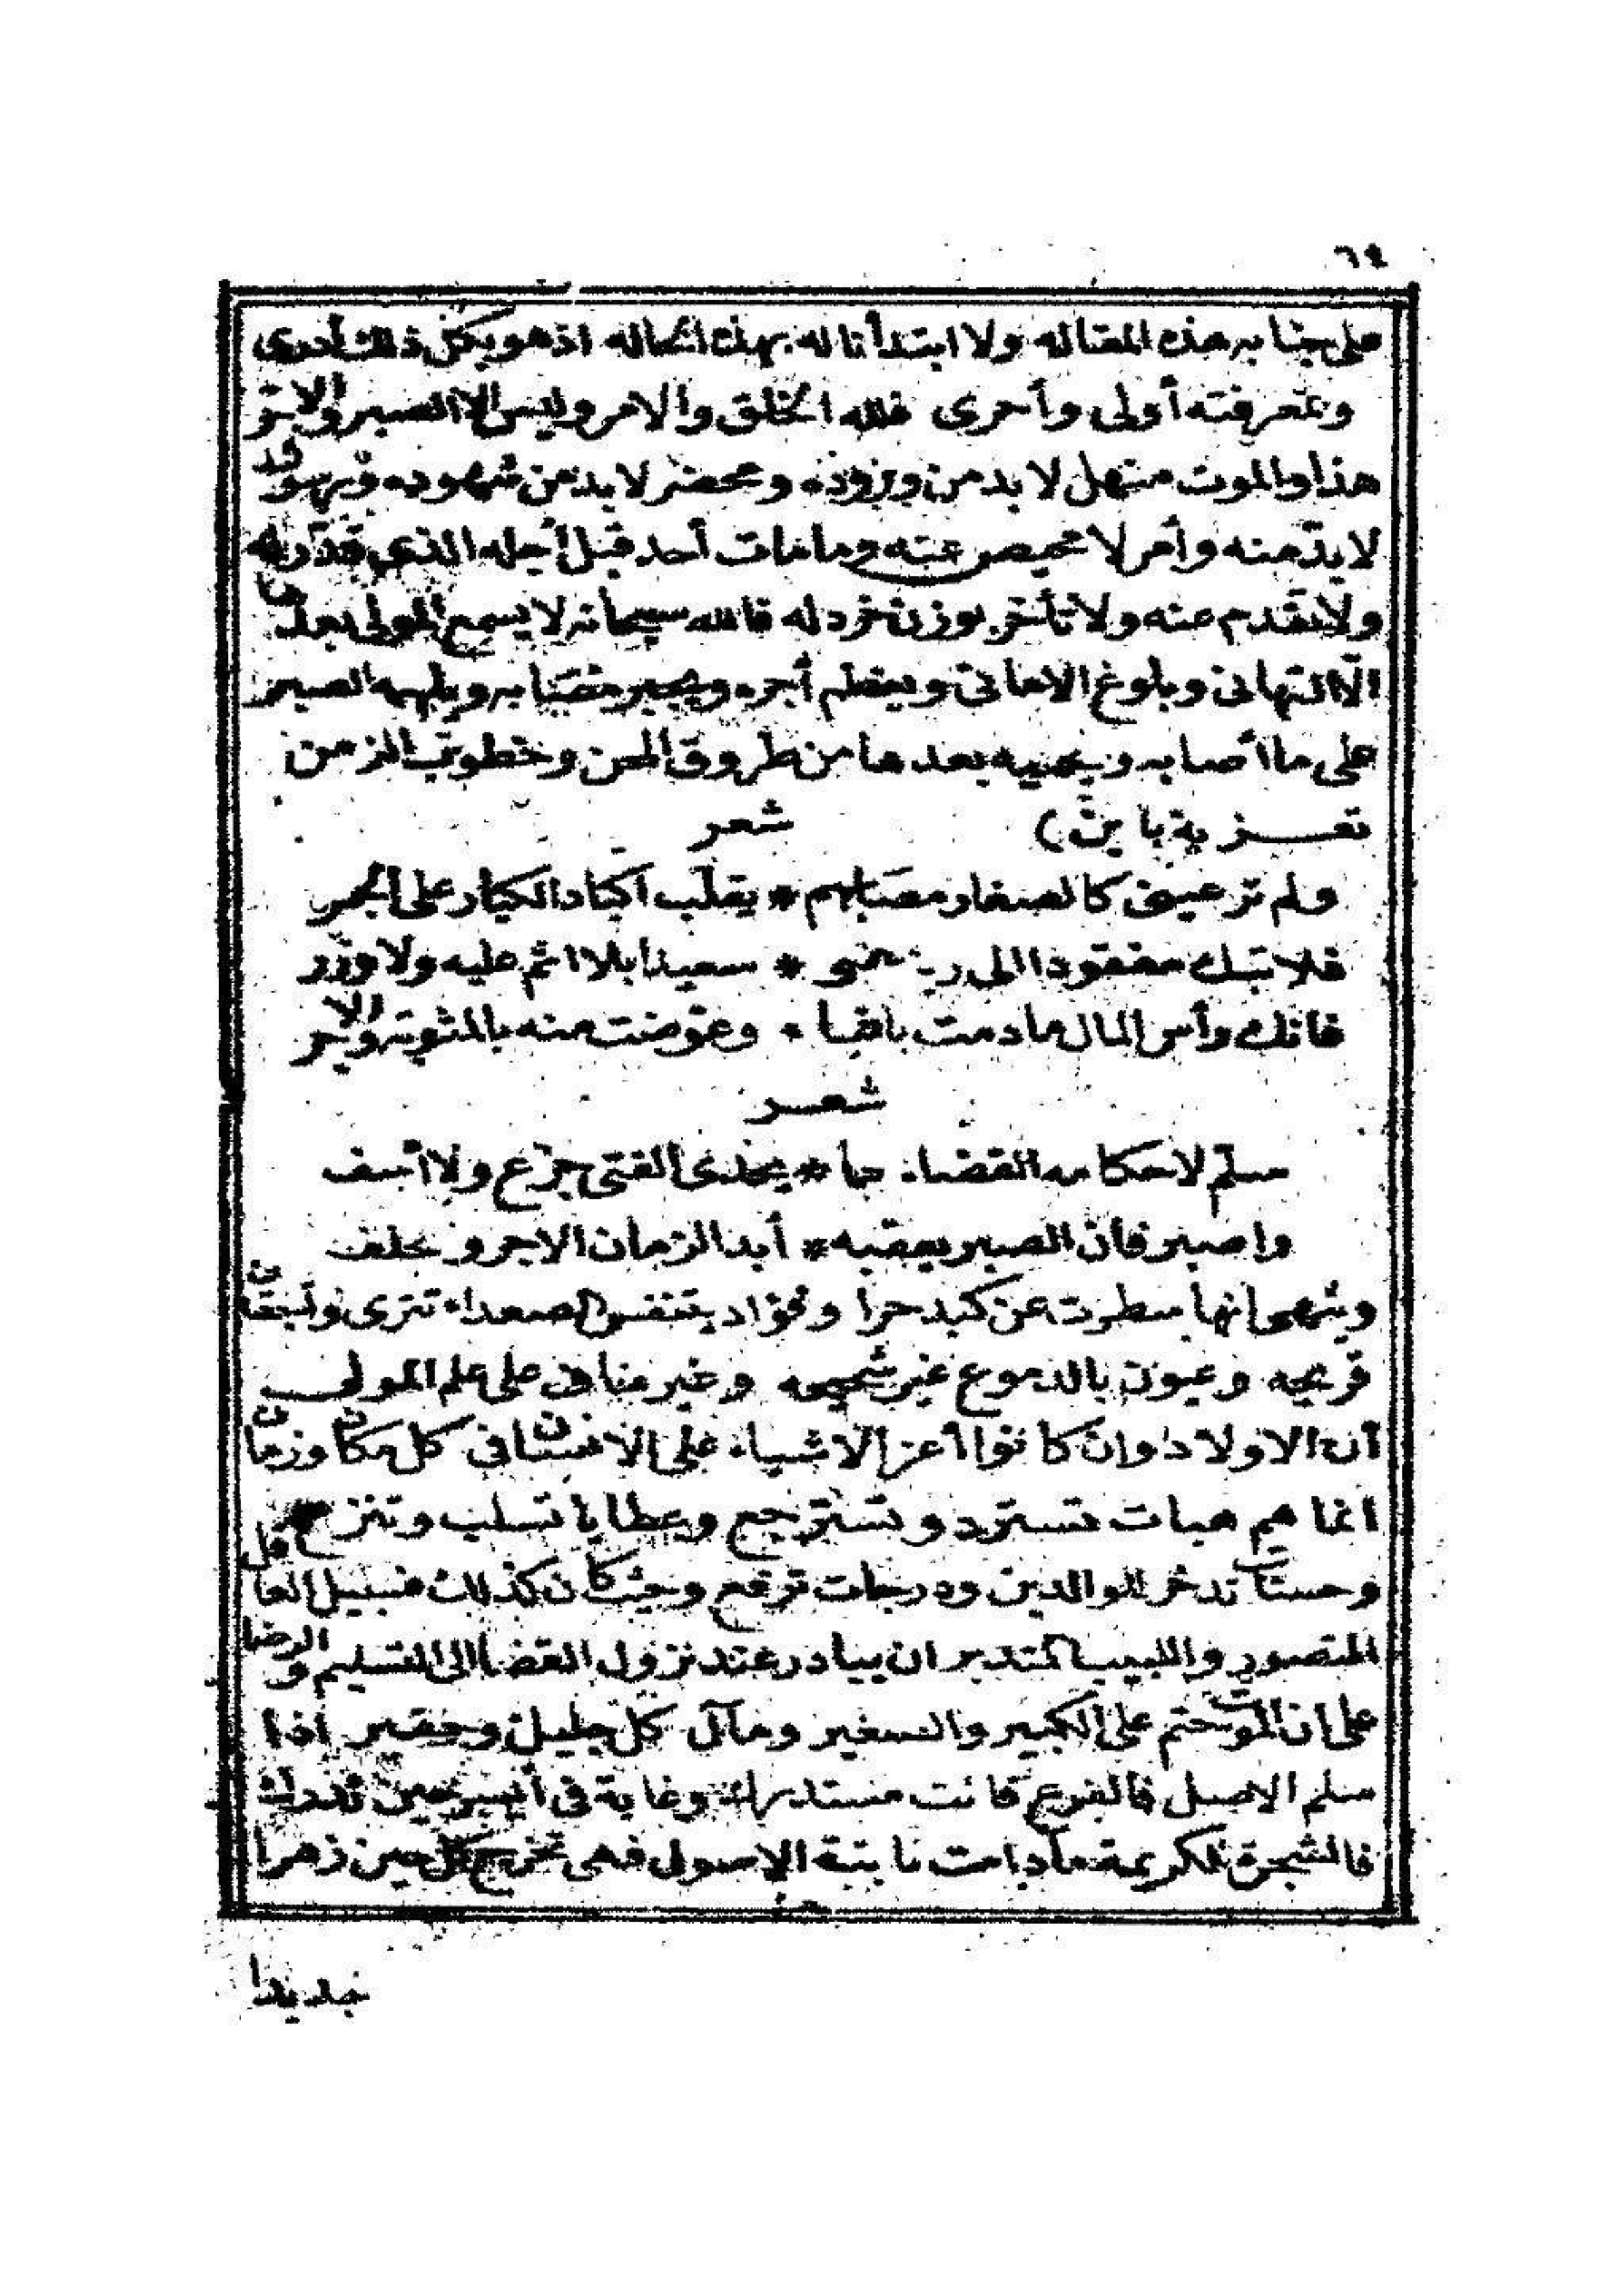 ٦٤
على جنابه هذه المقاله ولا ابتدأنا له بهذه الحاله اذ هو بكل ذلك أدرى
وبمعرفته أولى وأحرى فلله الخلق والامر وليس الا الصبر والاجر
هذا والموت منهل لا بد من وروده ومحضر لا بد من شهوده فهو قد
لا بد منه وأمر لا محيص عنه وما مات أحد قبل أجله الذي قدر له
ولا تقدم عنه ولا تأخر بوزن خردله فالله سبحانه لا يسمع المولى بعدها
الا التهاني وبلوغ الاماني ويعظم أجره ويجبر مصابه ويلهمه الصبر
على ما أصابه وينجيه بعدها من طروق المحن وخطوب الزمن
تعزية بابن) شعر
ولم تر عيني كالصغار مصابهم * يقلب أكباد الكبار على الجمر
فلا تبك مفقودا الى * سعيدا بلا اثم عليه ولا وزر
فانك رأس المال ما دمت باقيا * وعوضت منه بالمثوبة والاجر
شعر
سلم لاحكامه القضاء فما * يجدى الفتى جزع ولا أسف
واصبر فان الصبر يعقبه * أبد الزمان الاجر والخلف
وينهى انها سطرت عن كبد حرا وفؤاد يتنفس الصعداء تترى وأجفان
قريحه وعيون بالدموع غير شحيحه وغير مناف على علم المولى
أن الاولاد وان كانوا أعز الاشياء على الانسان فى كل مكان وزمان
انما هم هبات تسترد وتسترجع وعطايا تسلب وتنزع
وحسنات تدخر للوالدين ودرجات ترفع وحيث كان كذلك فسبيل العاقل
المتصور واللبيب المتدبر ان يبادر عند نزول القضا الى التسليم والرضا
على ان الموت حتم على الكبير والصغير ومآل كل جليل وحقير اذا
سلم الاصل فالفرع فائت مستدرك وغاية فى أيسر حين تدرك
فالشجرة الكريمة ما دامت نابتة الاصول فهى تخرج كل حين زهرا
جديدا